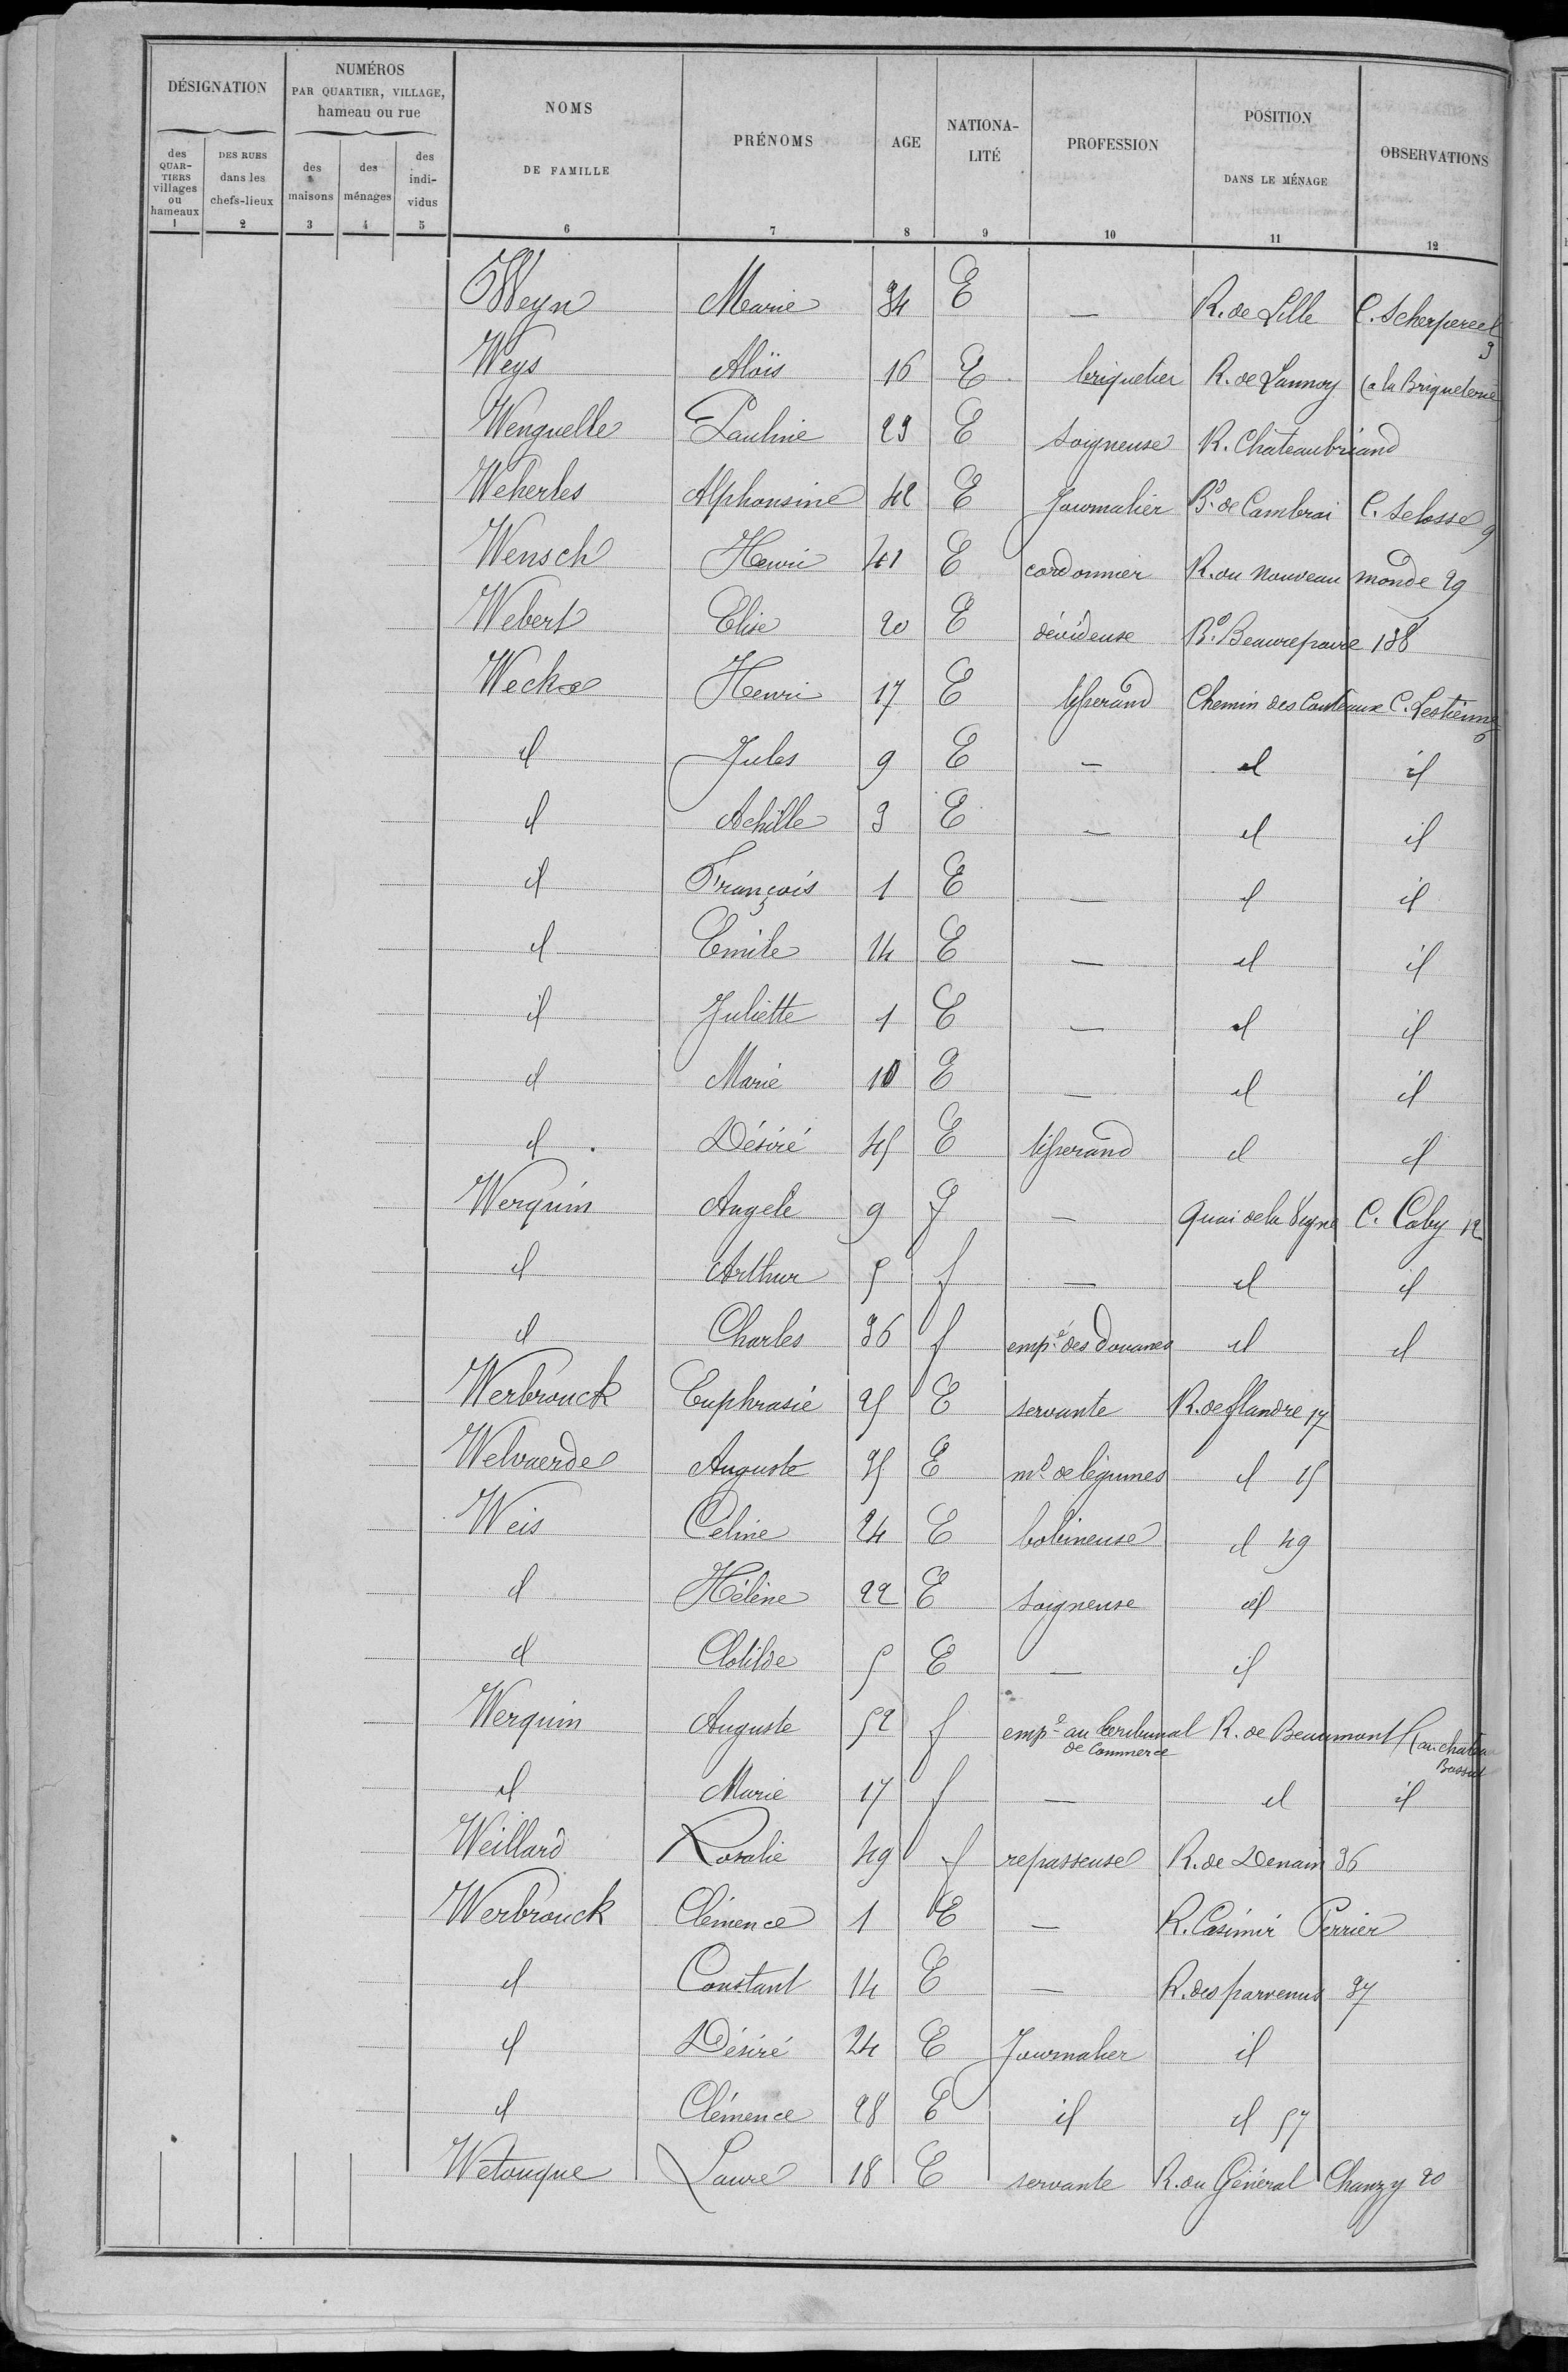 DÉSIGNATION
NUMÉROS
PAR QUARTIER, VILLAGE,
hameau ou rue
NOMS
DE FAMILLE
PRÉNOMS
AGE
NATIONA-
LITÉ
PROFESSION
POSITION
DANS LE MÉNAGE
OBSERVATIONS
des
QUAR-
TIERS
villages
ou
hameaux
DES RUES
dans les
chefs-lieux
des
maisons
des
ménages
des
indi-
vidus
1 2 3 4 5 6 7 8 9 10 11 12
Weyn Marie 34 E — R. de Lille C. Scherpereel 3
Weys Aloïs 16 E briquetier R. de Lannoy (a la Briqueterie
Wenguelle Pauline 23 E soigneuse R. Chateaubriand
Weherles Alphonsine 42 E Journalier Bd. de Cambrai C. Selosse 9
Wensch Henri 41 E cordonnier R. du Nouveau monde 29
Webert Elise 20 E dévideuse Bd. Beaurepaire 138
Weckx Henri 17 E tisserand Chemin des Couteaux C. Lestienne 6
id Jules 9 E — id id
id Achille 3 E — id id
id François 1 E — id id
id Emile 14 E — id id
id Juliette 1 E — id id
id Marie 10 E — id id
id Désiré 45 E tisserand id id
Werquin Angele 9 f — Quai de la Vigne C. Caby 12
id Arthur 5 f — id id
id Charles 36 f empé. des Douanes id id
Werbrouck Euphrasie 25 E servante R. de flandre 17
Welvaerde Auguste 35 E md. de légumes id 15
Weis Celine 24 E bobineuse id 49
id Hélène 22 E soigneuse id
id Clotilde 5 E — id
Werquin Auguste 52 f empé au tribunal R. de Beaumont (au chateau
de Commerce
id Marie 17 f — id id
Weillard Rosalie 49 f repasseuse R. de Denain 36
Werbrouck Clémence 1 E — R. Casimir Perrier
id Constant 14 E — R. des parvenus 37
id Désiré 24 E Journalier id
id Clémence 28 E id id 57
Wetouque Laure 18 E servante R. du Général Chanzy 20